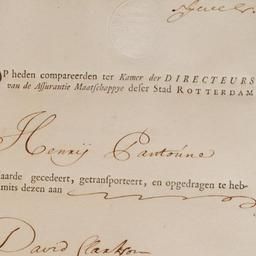 OP heden compareerden ter Kamer der DIRECTEURS
van de Assurantie Maatschappye deser Stad ROTTERDAM
Henrij Pantoúne
aarde gecedeert, getransporteert, en opgedragen te heb-
mits dezen aan
David